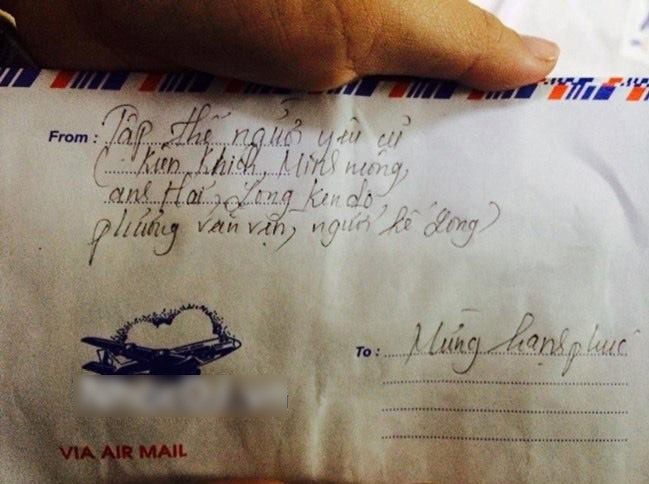 From : Tập thể người yêu cũ
( Kiên Khích, Minh mông,
anh Hải, Long Kendo,
phương văn vẹn, người kế Long)
To : Mừng hạnh phúc
VIA AIR MAIL